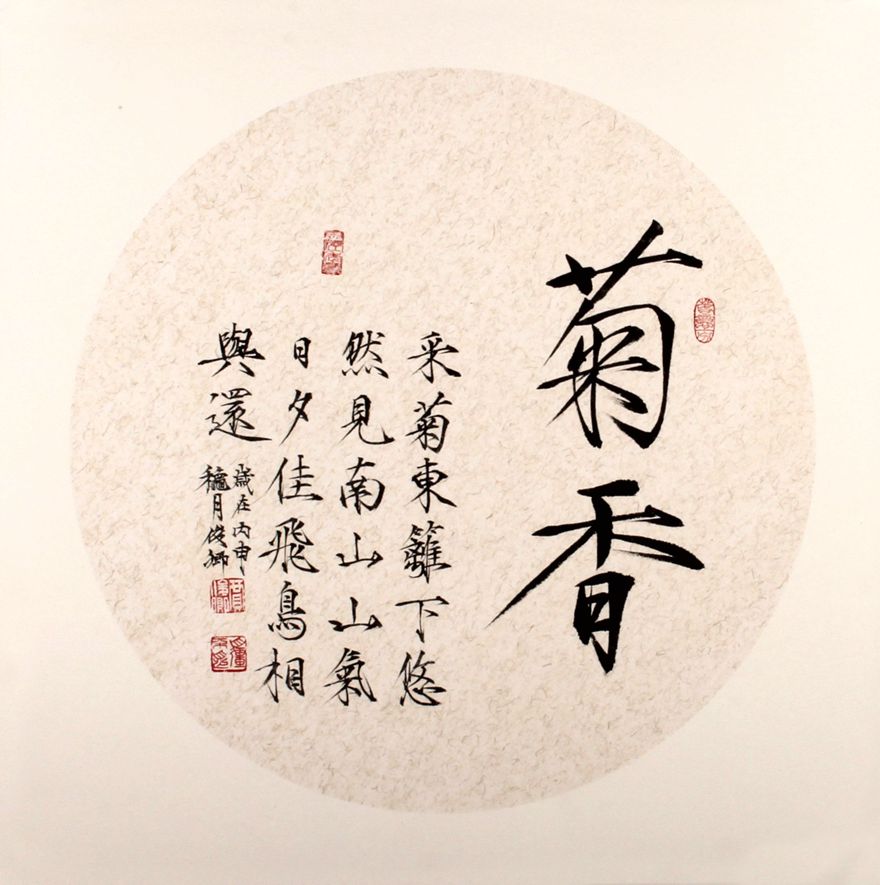 菊香
采菊東籬下悠
然見南山山氣
日夕佳飛鳥相
與還
歲在丙申
穐月俊卿